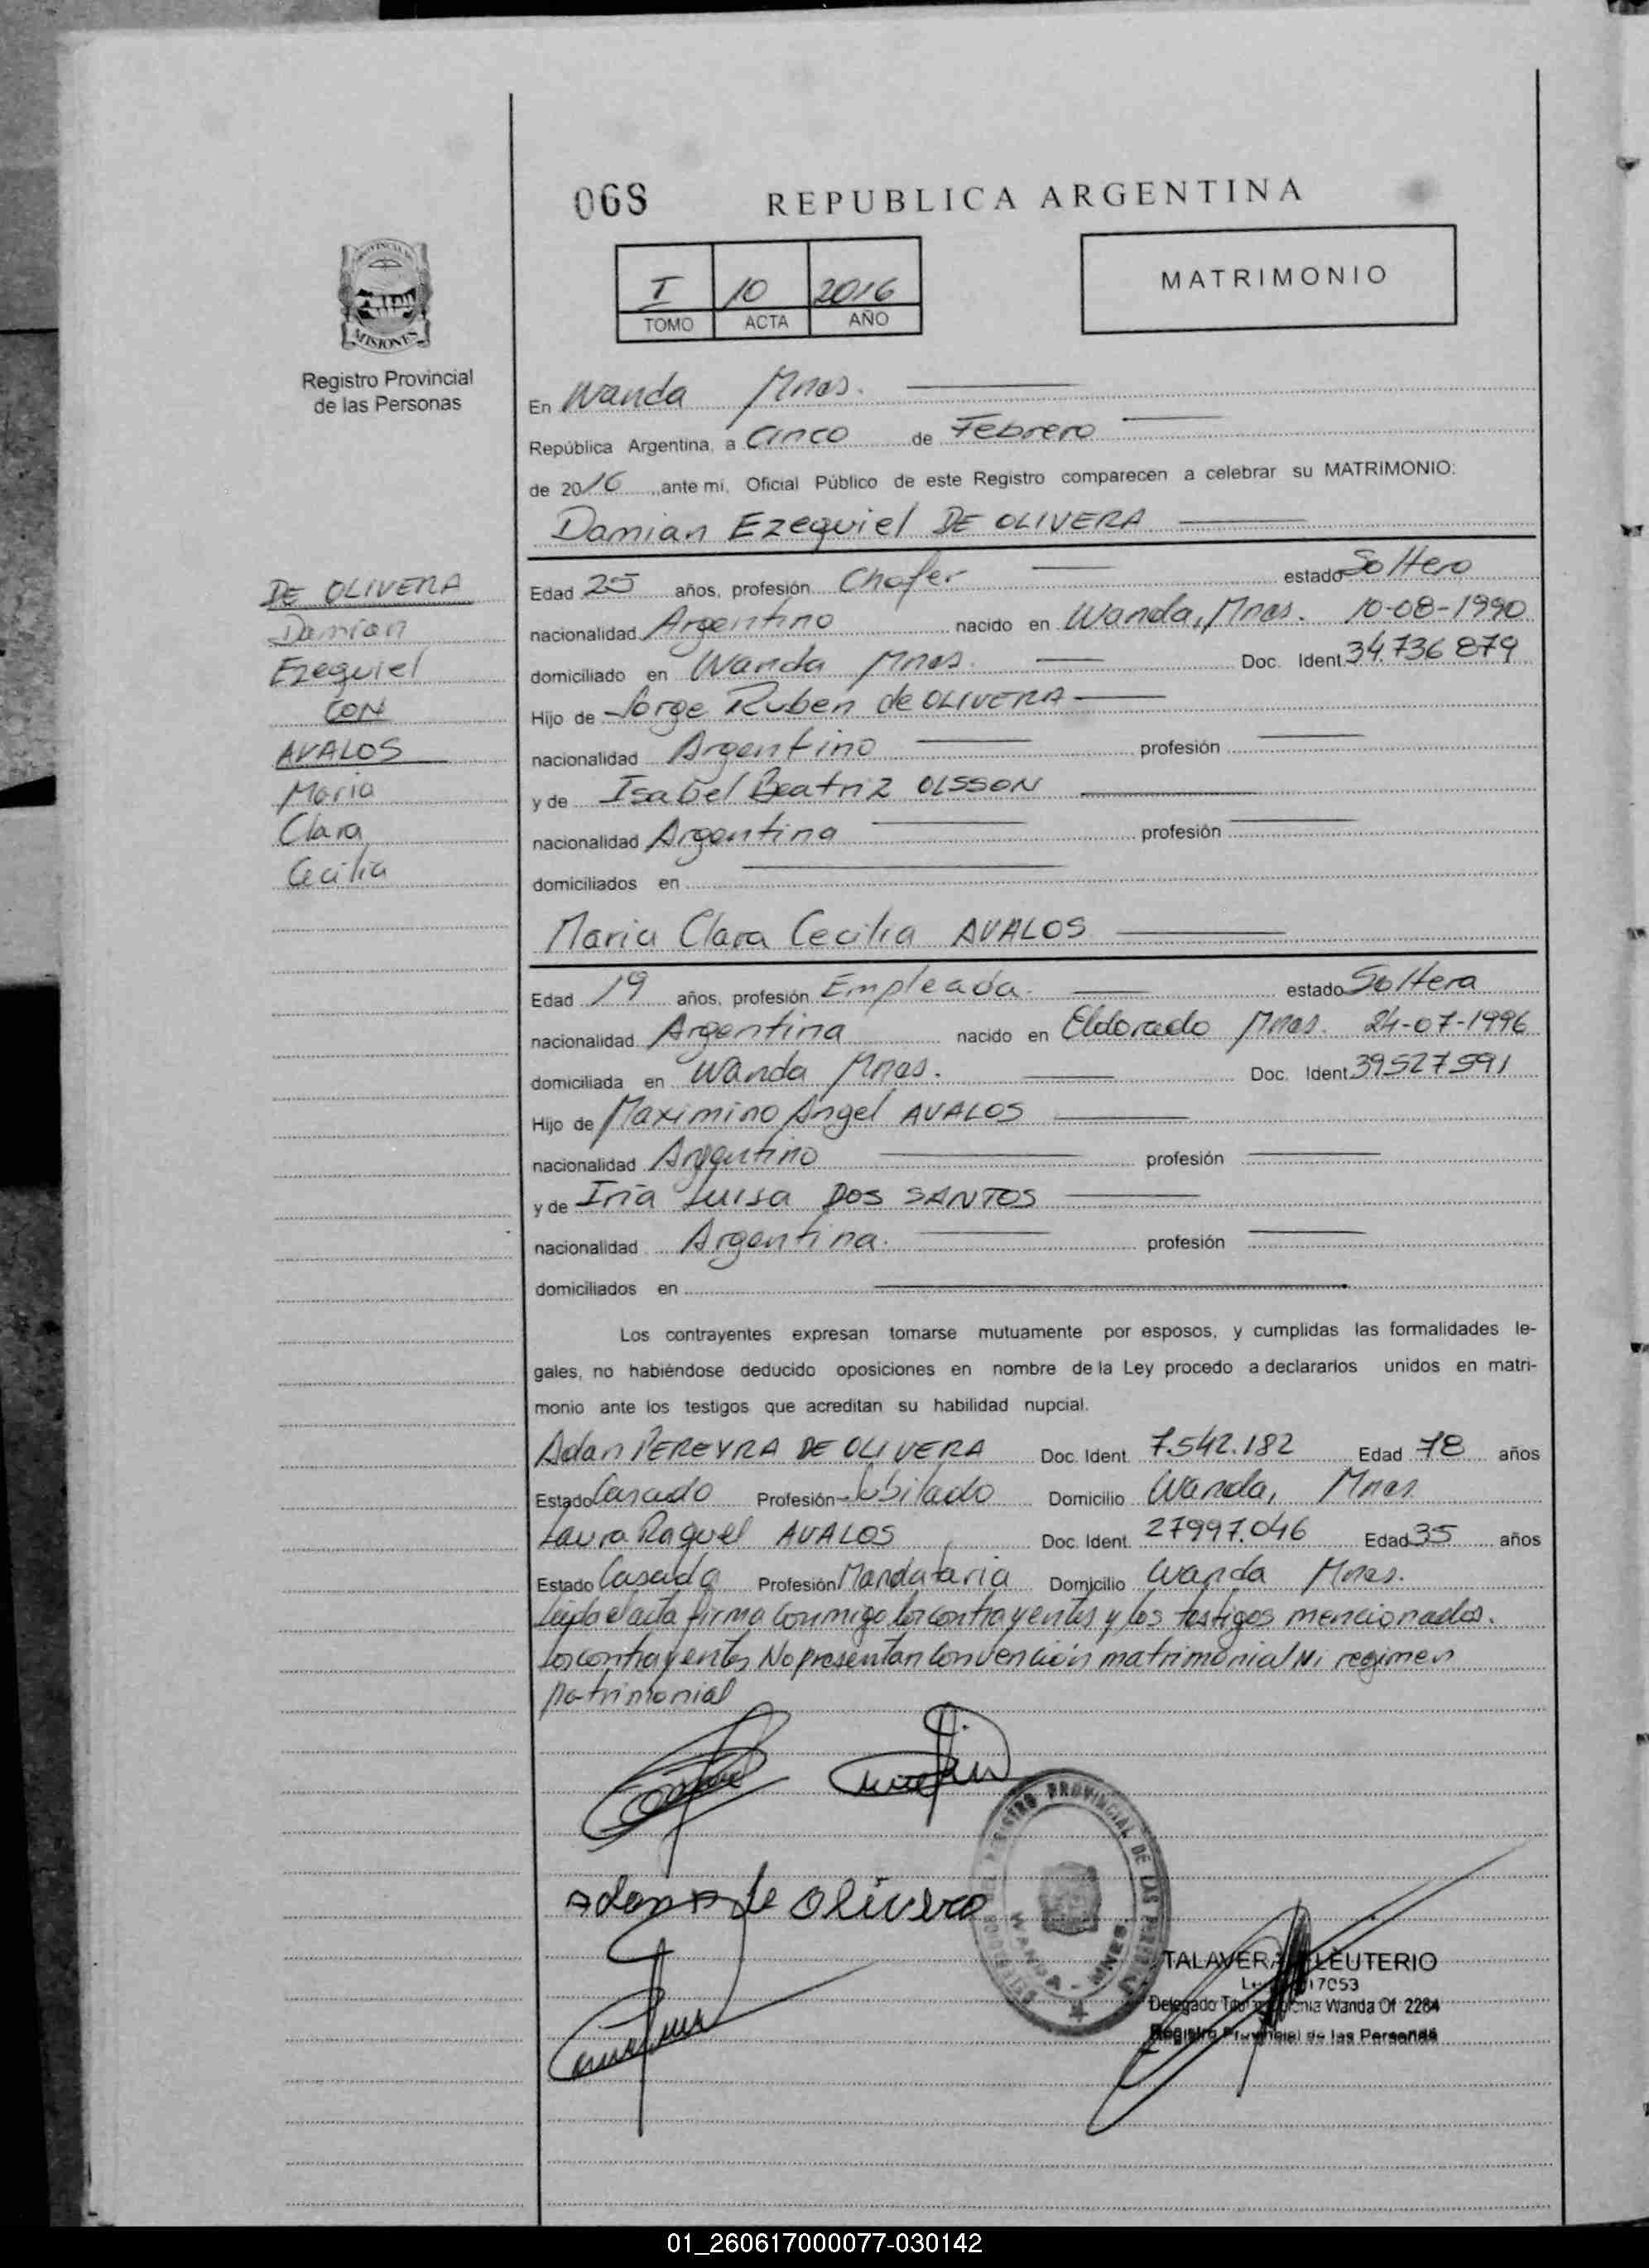 068 REPUBLICA ARGENTINA
PROVINCIA DE
MISIONES
Registro Provincial
de las Personas
I 10 2016
TOMO ACTA AÑO
MATRIMONIO
En Wanda Mnes.
República Argentina, a Cinco de Febrero
de 2016 ,ante mi, Oficial Público de este Registro comparecen a celebrar su MATRIMONIO:
Damian Ezequiel DE OLIVERA
DE OLIVERA
Damian
Ezequiel
CON
AVALOS
Maria
Clara
Cecilia
Edad 25 años, profesión Chofer estado Soltero
nacionalidad Argentino nacido en Wanda, Mnes. 10-08-1990
domiciliado en Wanda Mnes. Doc. Ident. 34.736 879
Hijo de Jorge Ruben de OLIVERA
nacionalidad Argentino profesión
y de Isabel Beatriz OLSSON
nacionalidad Argentina profesión
domiciliados en
Maria Clara Cecilia AVALOS
Edad 19 años, profesión Empleada. estado Soltera
nacionalidad Argentina nacido en Eldorado Mnes. 24-07-1996
domiciliada en Wanda Mnes. Doc. Ident. 39527591
Hijo de Maximino Angel AVALOS
nacionalidad Argentino profesión
y de Iria Luisa DOS SANTOS
nacionalidad Argentina. profesión
domiciliados en
Los contrayentes expresan tomarse mutuamente por esposos, y cumplidas las formalidades le-
gales, no habiéndose deducido oposiciones en nombre de la Ley procedo a declararlos unidos en matri-
monio ante los testigos que acreditan su habilidad nupcial.
Adan PEREYRA DE OLIVERA Doc. Ident. 7.542.182 Edad 78 años
Estado Casado Profesión Jubilado Domicilio Wanda, Mnes
Laura Raquel AVALOS Doc. Ident. 27997.046 Edad 35 años
Estado Casada Profesión Mandataria Domicilio Wanda Mnes.
Leida el acta firma conmigo los contrayentes y los testigos mencionados.
Los contrayentes No presentan convención matrimonial Ni regimen
patrimonial
de Olivera
REGISTRO PROVINCIAL DE LAS
WANDA - MNES
TALAVERA ELEUTERIO
7053
Delegado Wanda Of 2284
Registro Provincial de las Personas
01_260617000077-030142